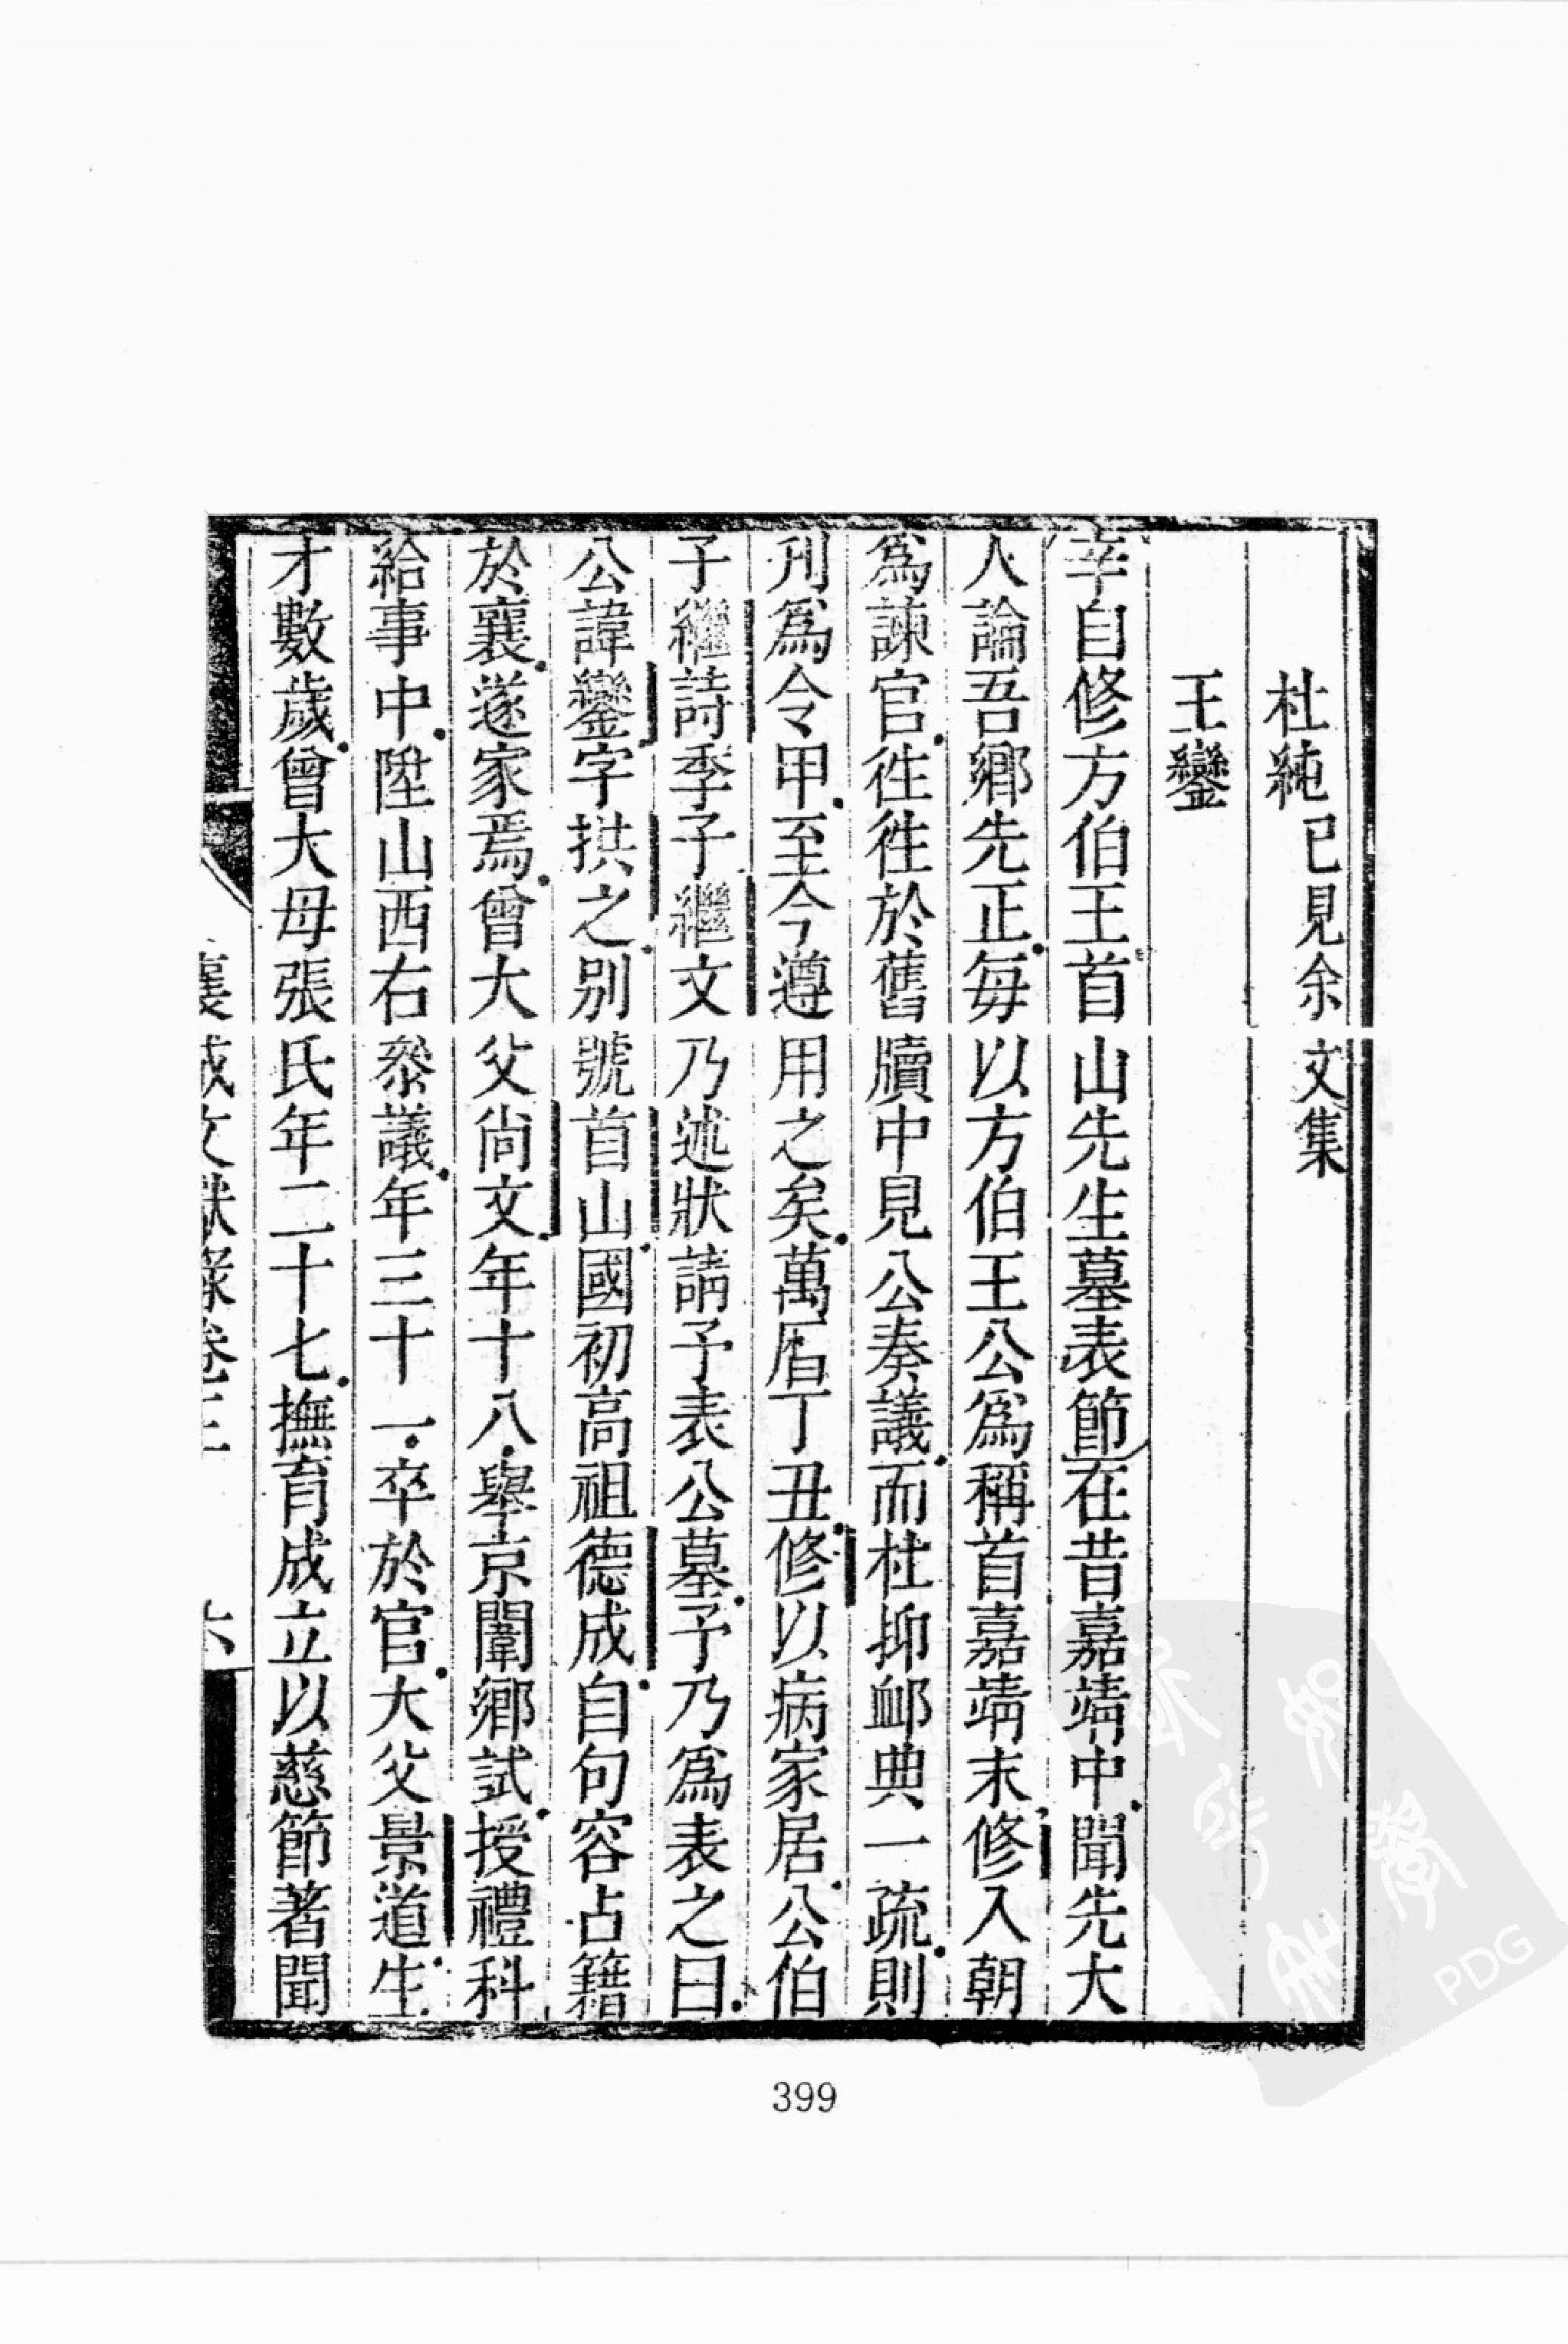 杜純已見余文集
王鑾
辛自修方伯王首山先生墓表節在昔嘉靖中聞先大
人論吾鄉先正每以方伯王公爲稱首嘉靖末修入朝
爲諫官徃徃於舊牘中見公奏議而杜抑䘏典一疏則
刋爲令甲至今遵用之矣萬厝丁丑修以病家居公伯
子繼詩季子繼文乃述狀請予表公墓予乃爲表之曰
公諱鑾字拱之别號首山國初高祖德成自句容占籍
於襄遂家焉曾大父尙文年十八舉京闈鄉試授禮科
給事中陞山西右叅議年三十一卒於官大父景道生
才數歲曾大母張氏年二十七撫育成立以慈節著聞
襄城文獻錄卷三 六
399
PDG